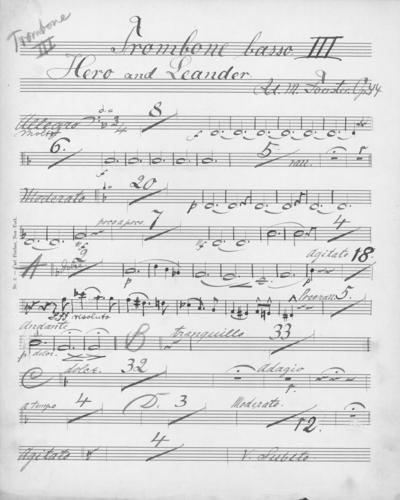 Trombone
III
Trombone basso III
Hero and Leander.
Ad. M. Foerster. Op. 44
Allegro 3 4 8
molto
f
6. f 5 rall.
Moderato 20 p
poco a poco 7 4
f
Agitato 18.
A
resoluto 5.
Andante B tranquillo 33
p dolce.
C dolce. 32 Adagio
p.
a tempo 4 D. 3 Moderato.
12.
Agitato 4 V. Subito